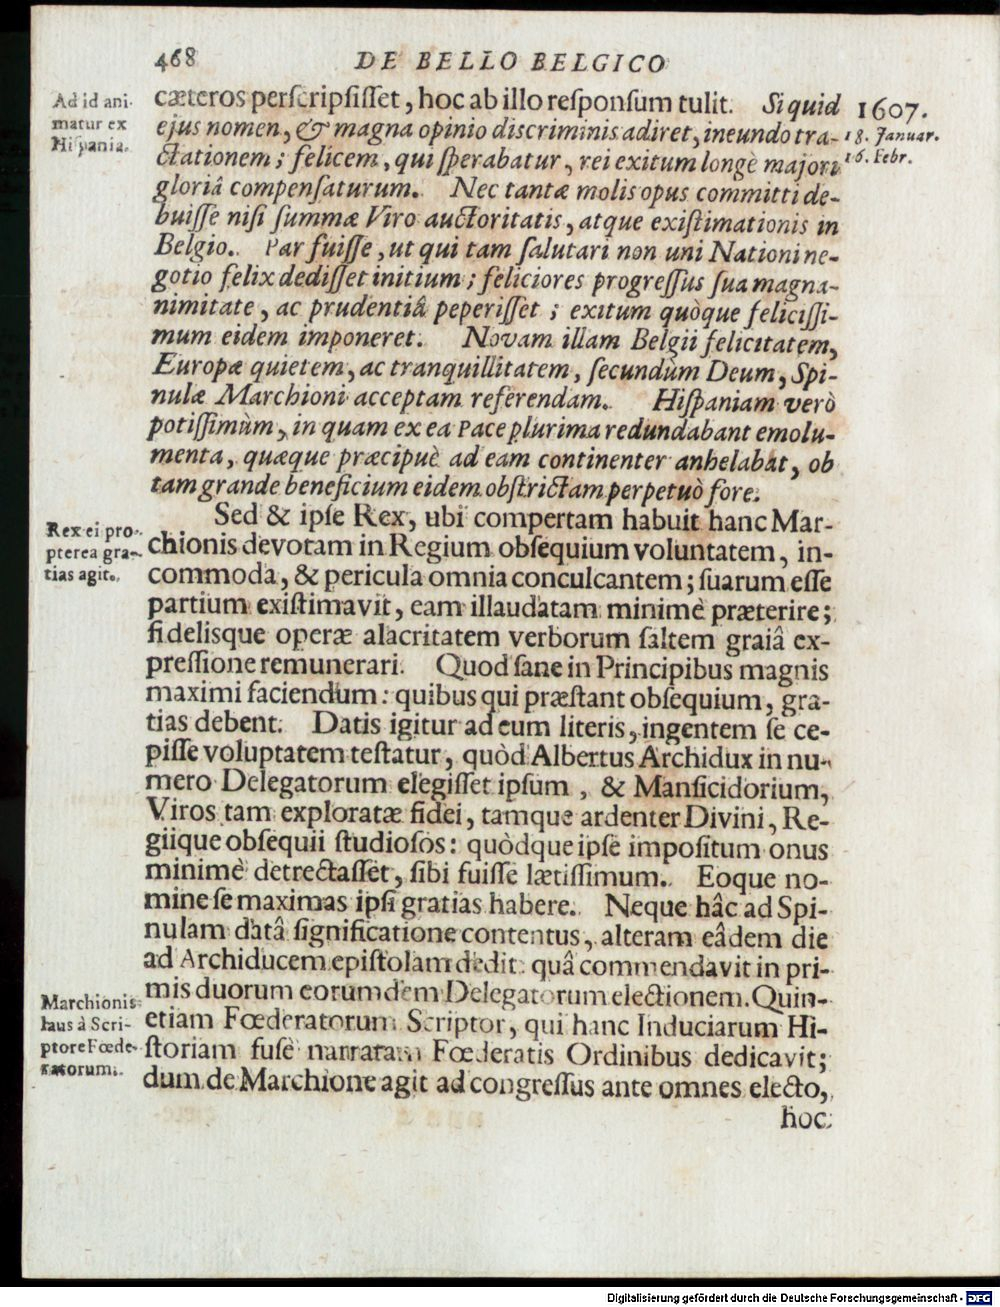 468
DE BELLO BELGICO
Ad id ani-
matur ex
Hispania.
1607.
18. Januar.
16. Febr.
cæteros perſcripſiſſet, hoc ab illo reſponſum tulit. Si quid
ejus nomen, & magna opinio discriminis adiret, ineundo tra-
ctationem; felicem, qui ſperabatur, rei exitum longè majori
gloriâ compenſaturum. Nec tantæ molis opus committi de-
buiſſe niſi ſummæ Viro auctoritatis, atque exiſtimationis in
Belgio. Par fuiſſe, ut qui tam ſalutari non uni Nationi ne-
gotio felix dediſſet initium; feliciores progreſſus ſua magna-
nimitate, ac prudentiâ peperiſſet; exitum quòque feliciſſi-
mum eidem imponeret. Novam illam Belgii felicitatem,
Europæ quietem, ac tranquillitatem, ſecundùm Deum, Spi-
nulæ Marchioni acceptam referendam. Hiſpaniam verò
potiſſimùm, in quam ex ea Pace plurima redundabant emolu-
menta, quæque præcipuè ad eam continenter anhelabat, ob
tam grande beneficium eidem obſtrictam perpetuò fore.
Rex ei pro-
pterea gra-
tias agit.
Sed & ipſe Rex, ubi compertam habuit hanc Mar-
chionis devotam in Regium obſequium voluntatem, in-
commoda, & pericula omnia conculcantem; ſuarum eſſe
partium exiſtimavit, eam illaudatam minimè præterire;
fidelisque operæ alacritatem verborum ſaltem graiâ ex-
preſſione remunerari. Quod ſane in Principibus magnis
maximi faciendum: quibus qui præſtant obſequium, gra-
tias debent. Datis igitur ad eum literis, ingentem ſe ce-
piſſe voluptatem teſtatur, quòd Albertus Archidux in nu-
mero Delegatorum elegiſſet ipſum, & Manſicidorium,
Viros tam exploratæ fidei, tamque ardenter Divini, Re-
giique obſequii ſtudioſos: quòdque ipſe impoſitum onus
minimè detrectaſſet, ſibi fuiſſe lætiſſimum. Eoque no-
mine ſe maximas ipſi gratias habere. Neque hâc ad Spi-
nulam datâ ſignificatione contentus, alteram eâdem die
ad Archiducem epiſtolam dedit: quâ commendavit in pri-
mis duorum eorumdem Delegatorum electionem. Quin-
etiam Fœderatorum Scriptor, qui hanc Induciarum Hi-
ſtoriam fuſè narratam Fœderatis Ordinibus dedicavit;
dum de Marchione agit ad congreſſus ante omnes electo,
Marchionis
laus à Scri-
ptore Fœde-
ratorum.
hoc
Digitalisierung gefördert durch die Deutsche Forschungsgemeinschaft - DFG